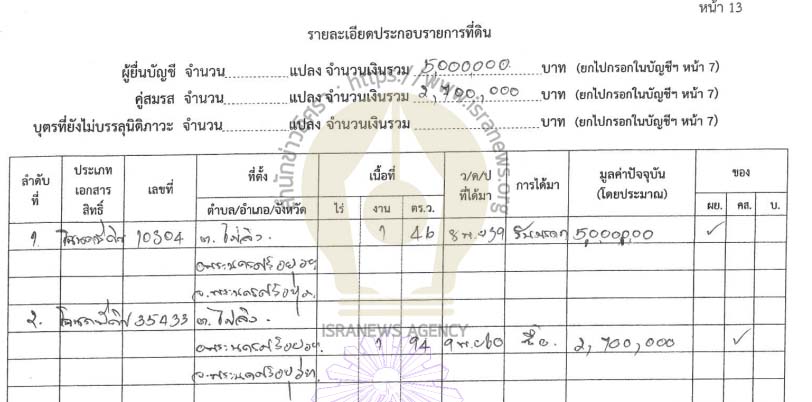 หน้า 13
รายละเอียดประกอบรายการที่ดิน
ผู้ยื่นบัญชี จำนวน..............แปลง จำนวนเงินรวม 5,000,000 บาท (ยกไปกรอกในบัญชีฯ หน้า 7)
คู่สมรส จำนวน..............แปลง จำนวนเงินรวม 2,700,000 บาท (ยกไปกรอกในบัญชีฯ หน้า 7)
บุตรที่ยังไม่บรรลุนิติภาวะ จำนวน..............แปลง จำนวนเงินรวม..............บาท (ยกไปกรอกในบัญชีฯ หน้า 7)
ลำดับที่ ประเภทเอกสารสิทธิ์ เลขที่ ที่ตั้ง เนื้อที่ ว/ด/ป ที่ได้มา การได้มา มูลค่าปัจจุบัน (โดยประมาณ) ของ
ตำบล/อำเภอ/จังหวัด ไร่ งาน ตร.ว. ผย. คส. บ.
1. โฉนดที่ดิน 10304 ต. ไผ่ลิง 1 46 รับมรดก 5,000,000 ✓
อ.พระนครศรีอยุธยา
จ.พระนครศรีอยุธยา
2. โฉนดที่ดิน 35433 ต. ไผ่ลิง
อ.พระนครศรีอยุธยา 1 94 ซื้อ 2,700,000 ✓
จ.พระนครศรีอยุธยา
สำนักข่าวอิศรา : https://www.isranews.org
ISRANEWS AGENCY